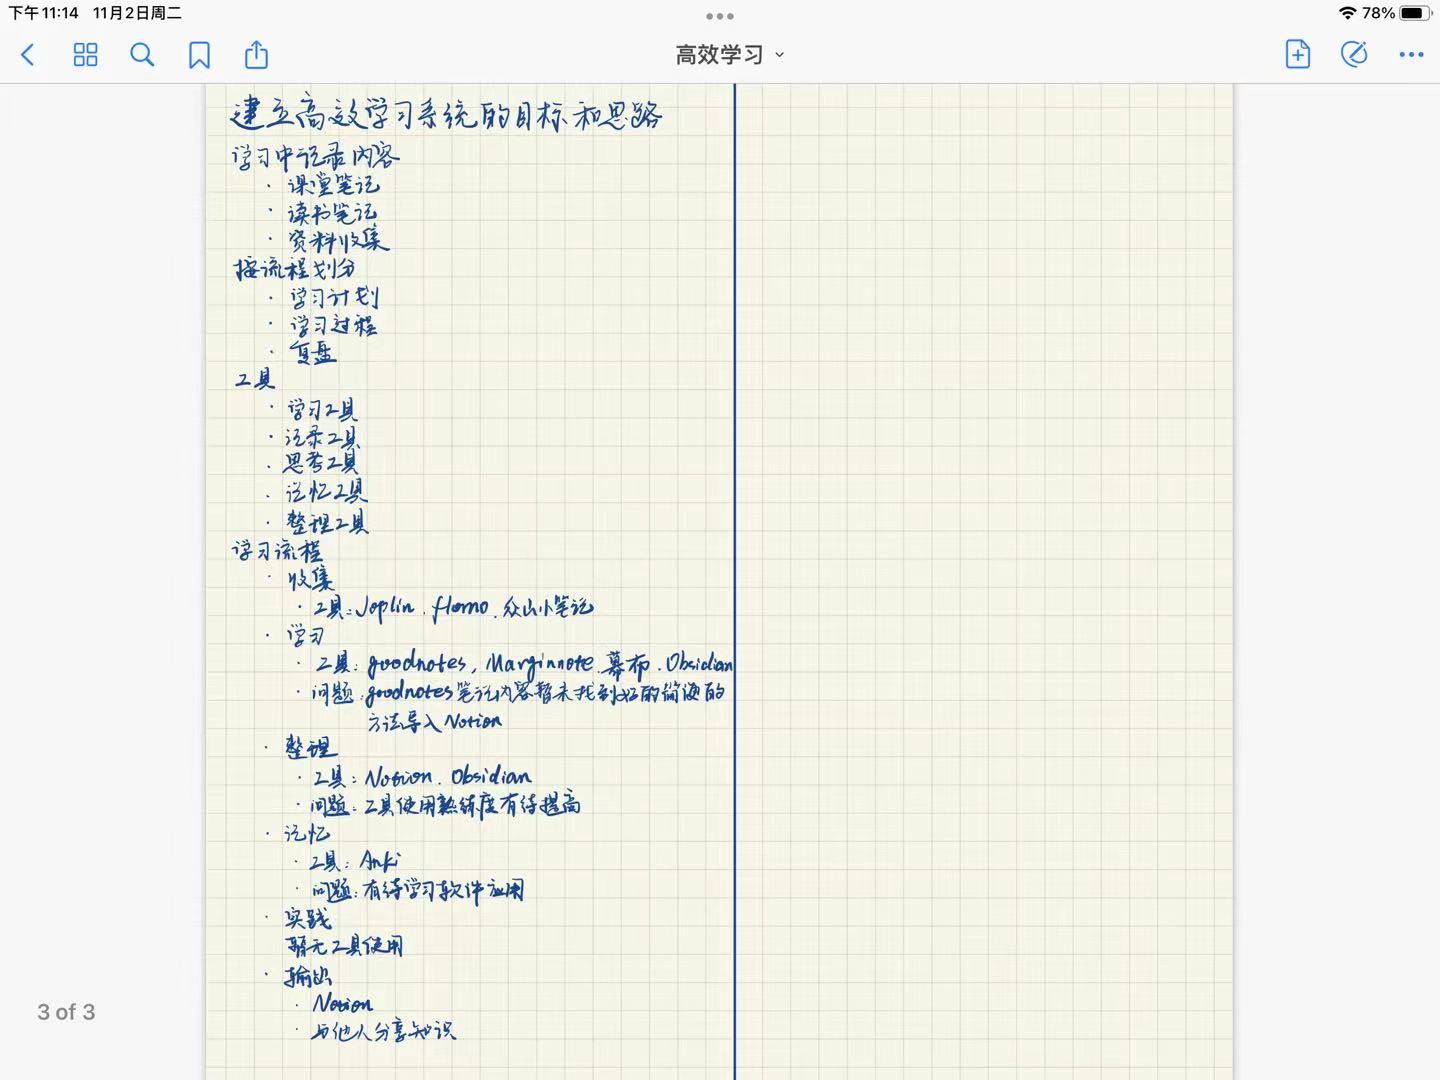 下午11:14 11月2日周二
78%
高效学习
建立高效学习系统的目标和思路
学习中记录内容
· 课堂笔记
· 读书笔记
· 资料收集
按流程划分
· 学习计划
· 学习过程
· 复盘
工具
· 学习工具
· 记录工具
· 思考工具
· 记忆工具
· 整理工具
学习流程
· 收集
· 工具：Joplin、flomo、众山小笔记
· 学习
· 工具：goodnotes，Marginnote、幕布、Obsidian
· 问题：goodnotes笔记内容暂未找到好的简便的
方法导入Notion
· 整理
· 工具：Notion、Obsidian
· 问题：工具使用熟练度有待提高
· 记忆
· 工具：Anki
· 问题：有待学习软件应用
· 实践
暂无工具使用
· 输出
· Notion
· 与他人分享知识
3 of 3